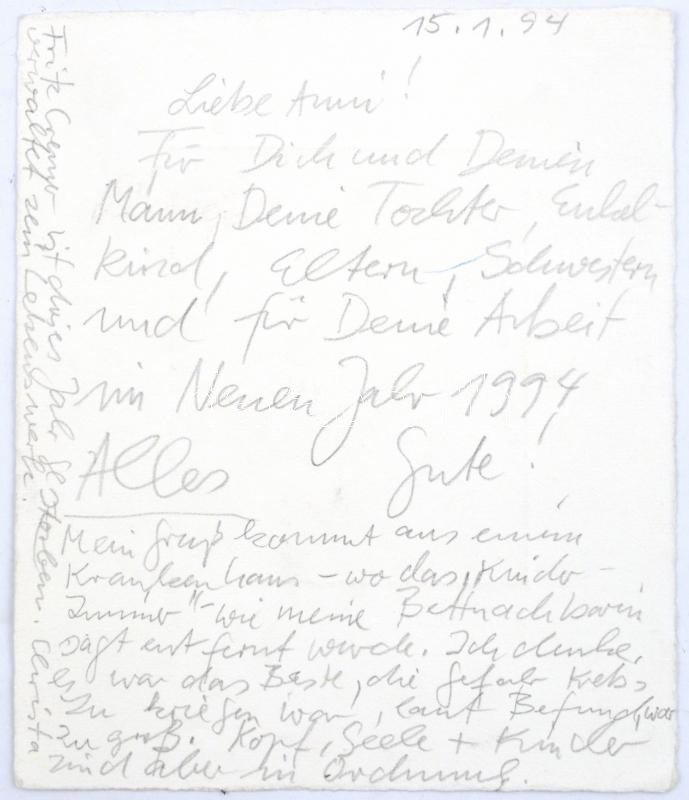 15.1.94
Liebe Anni!
Für Dich und Deinen
Mann, Deine Tochter, Enkel-
kind, Eltern, Schwestern
und für Deine Arbeit
im Neuen Jahr 1994
Alles Gute!
Mein Gruß kommt aus einem
Krankenhaus – wo das „Kinder-
zimmer" – wie meine Bettnachbarin
sagt entfernt wurde. Ich denke,
es war das Beste, die Gefahr Krebs
zu kriegen war, laut Befund, war
zu groß. Kopf, Seele + Kinder
sind aber in Ordnung.
Fritz Cremer ist dieses Jahr gestorben. Christa
verwaltet sein Lebenswerk.